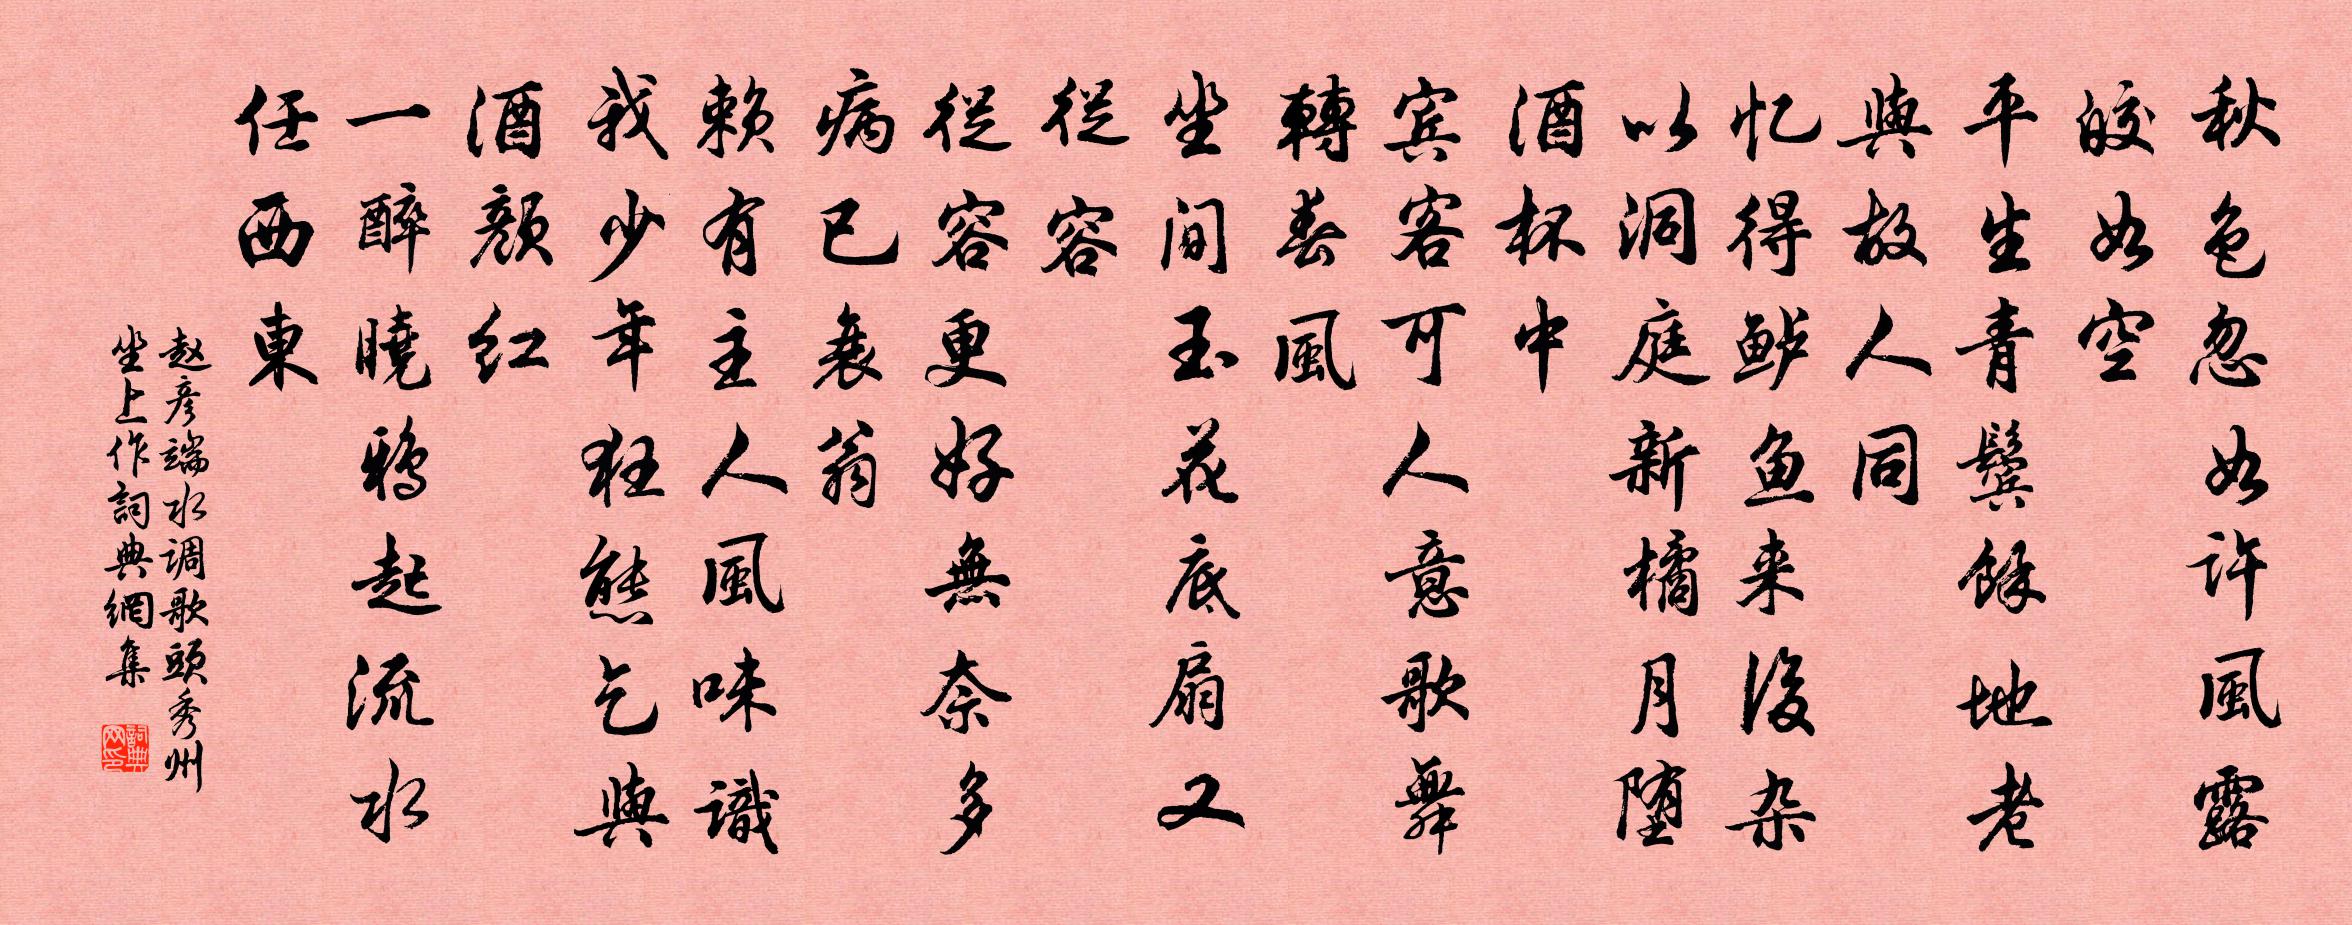 秋色忽如许風露
皎如空
平生青鬓餘地老
與故人同
忆得鲈魚来後杂
以洞庭新橘月堕
酒杯中
宾客可人意歌舞
轉春風
坐间玉花底扇又
從容
從容更好無奈多
病已衰翁
赖有主人風味識
我少年狂態乞與
酒颜红
一醉曉鴉起流水
任西東
赵彦端水调歌頭秀州
坐上作詞典網集
詞典网印